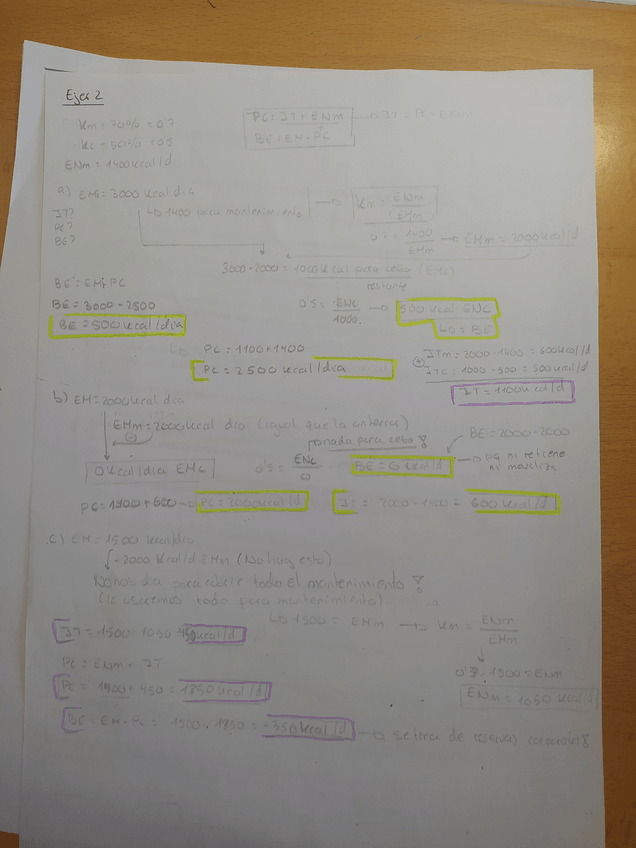 Ejer 2
Km = 70% = 0'7
Kc = 50% = 0'5
ENm = 1400 kcal/d
PC = IT + ENm → IT = PC - ENm
BE = EM - PC
a) EM = 3000 kcal dia
IT?
PC?
BE?
↳ 1400 para mantenimiento → Km = ENm / EMm
0'7 = 1400 / EMm → EMm = 2000 kcal/d
3000 - 2000 = 1000 kcal para cebo (EMc)
restante
BE = EM - PC
BE = 3000 - 2500
BE = 500 kcal/dia
0'5 = ENc / 1000 → 500 kcal ENC
↳ = BE
PC = 1100 + 1400
PC = 2500 kcal/dia
ITm = 2000 - 1400 = 600 kcal/d
ITc = 1000 - 500 = 500 kcal/d
IT = 1100 kcal/d
b) EM = 2000 kcal dia
EMm = 2000 kcal dia (igual que la anterior)
⊖ para cebo
0 kcal/dia EMc
0'5 = ENc / 0
BE = 0 kcal/d
BE = 2000 - 2000
→ Pq ni retiene ni moviliza
PC = 1400 + 600 → PC = 2000 kcal/d
IT = 2000 - 1400 = 600 kcal/d
c) EM = 1500 kcal/dia
- 2000 kcal/d EMm (No hay esto)
No nos da para cubrir todo el mantenimiento
(lo usaremos todo para mantenimiento)
↳ 1500 = EMm → Km = ENm / EMm
0'7 · 1500 = ENm
ENm = 1050 kcal/d
IT = 1500 - 1050 = 450 kcal/d
PC = ENm + IT
PC = 1400 + 450 = 1850 kcal/d
BE = EM - PC = 1500 - 1850 = -350 kcal/d → se tira de reservas corporales